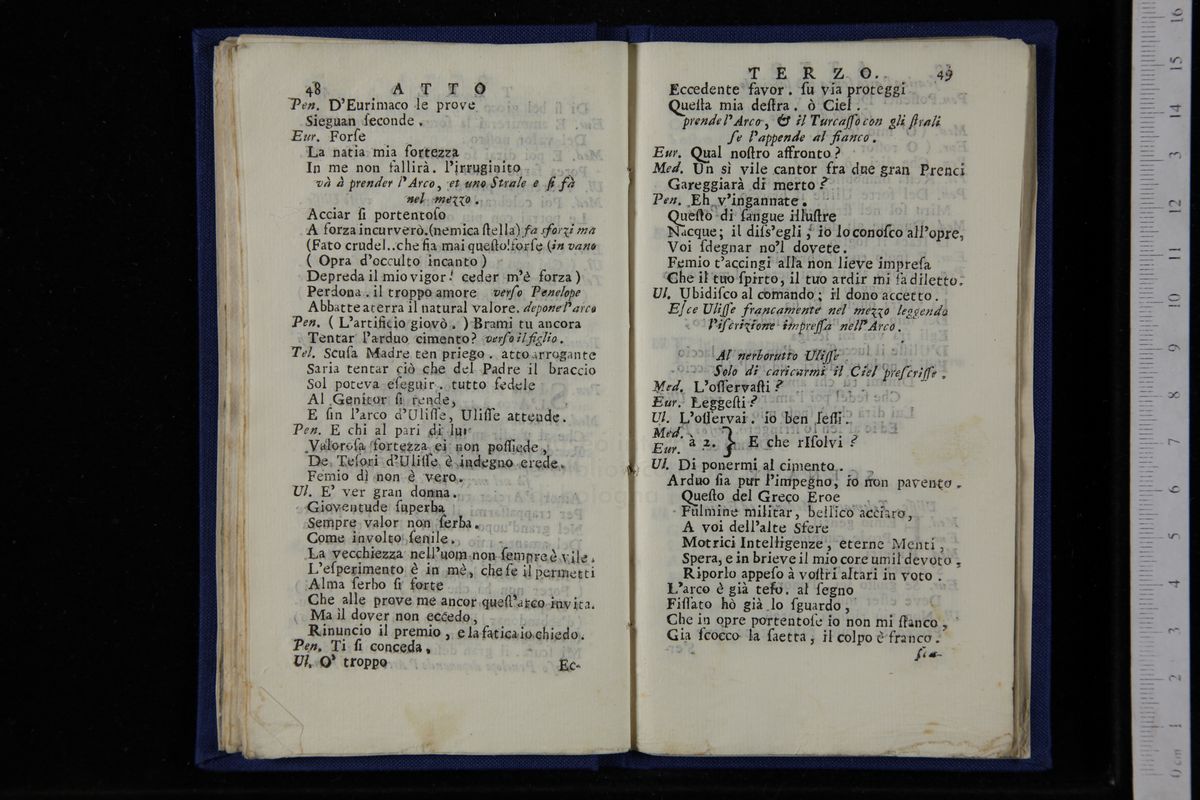 48 ATTO
Pen. D'Eurimaco le prove
Sieguan ſeconde.
Eur. Forſe
La natia mia fortezza
In me non fallirà. l'irruginito
và à prender l'Arco, et uno Strale e ſi fà
nel mezzo.
Acciar ſi portentoſo
A forza incurverò. (nemica ſtella) fa sforzi ma
(Fato crudel.. che fia mai queſto! forſe (in vano
( Opra d'occulto incanto )
Depreda il mio vigor! ceder m'è forza )
Perdona. il troppo amore verſo Penelope
Abbatte a terra il natural valore. depone l'arco
Pen. ( L'artificio giovò. ) Brami tu ancora
Tentar l'arduo cimento? verſo il figlio.
Tel. Scuſa Madre ten priego. atto arrogante
Saria tentar ciò che del Padre il braccio
Sol poteva eſeguir. tutto fedele
Al Genitor ſi rende,
E fin l'arco d'Uliſſe, Uliſſe attende.
Pen. E chi al pari di lui
Valoroſa fortezza ei non poſſiede,
De Teſori d'Uliſſe è indegno erede.
Femio dì non è vero.
Ul. E' ver gran donna.
Gioventude ſuperba
Sempre valor non ſerba.
Come involto ſenile.
La vecchiezza nell'uom non ſempre è vile.
L'eſperimento è in mè, che ſe il permetti
Alma ſerbo ſi forte
Che alle prove me ancor queſt'arco invita.
Ma il dover non eccedo,
Rinuncio il premio, e la fatica io chiedo.
Pen. Ti ſi conceda.
Ul. O' troppo Ec-
TERZO. 49
Eccedente favor. ſu via proteggi
Queſta mia deſtra. ò Ciel.
prende l'Arco, & il Turcaſſo con gli ſtrali
ſe l'appende al fianco.
Eur. Qual noſtro affronto?
Med. Un sì vile cantor fra due gran Prenci
Gareggiarà di merto?
Pen. Eh v'ingannate.
Queſto di ſangue illuſtre
Nacque; il diſs'egli; io lo conoſco all'opre,
Voi ſdegnar no'l dovete.
Femio t'accingi alla non lieve impreſa
Che il tuo ſpirto, il tuo ardir mi fa diletto.
Ul. Ubidiſco al comando; il dono accetto.
Eſce Uliſſe francamente nel mezzo leggendo
l'iſcrizione impreſſa nell'Arco.
Al nerborutto Uliſſe
Solo di caricarmi il Ciel preſcriſſe.
Med. L'oſſervaſti?
Eur. Leggeſti?
Ul. L'oſſervai. io ben leſſi.
Med.
Eur. à 2. } E che rIſolvi?
Ul. Di ponermi al cimento.
Arduo ſia pur l'impegno, io non pavento.
Queſto del Greco Eroe
Fulmine militar, bellico acciaro,
A voi dell'alte Sfere
Motrici Intelligenze, eterne Menti,
Spera, e in brieve il mio core umil devoto,
Riporlo appeſo à voſtri altari in voto.
L'arco è già teſo. al ſegno
Fiſſato hò già lo ſguardo,
Che in opre portentoſe io non mi ſtanco,
Gia ſcocco la ſaetta, il colpo è franco.
ſca-